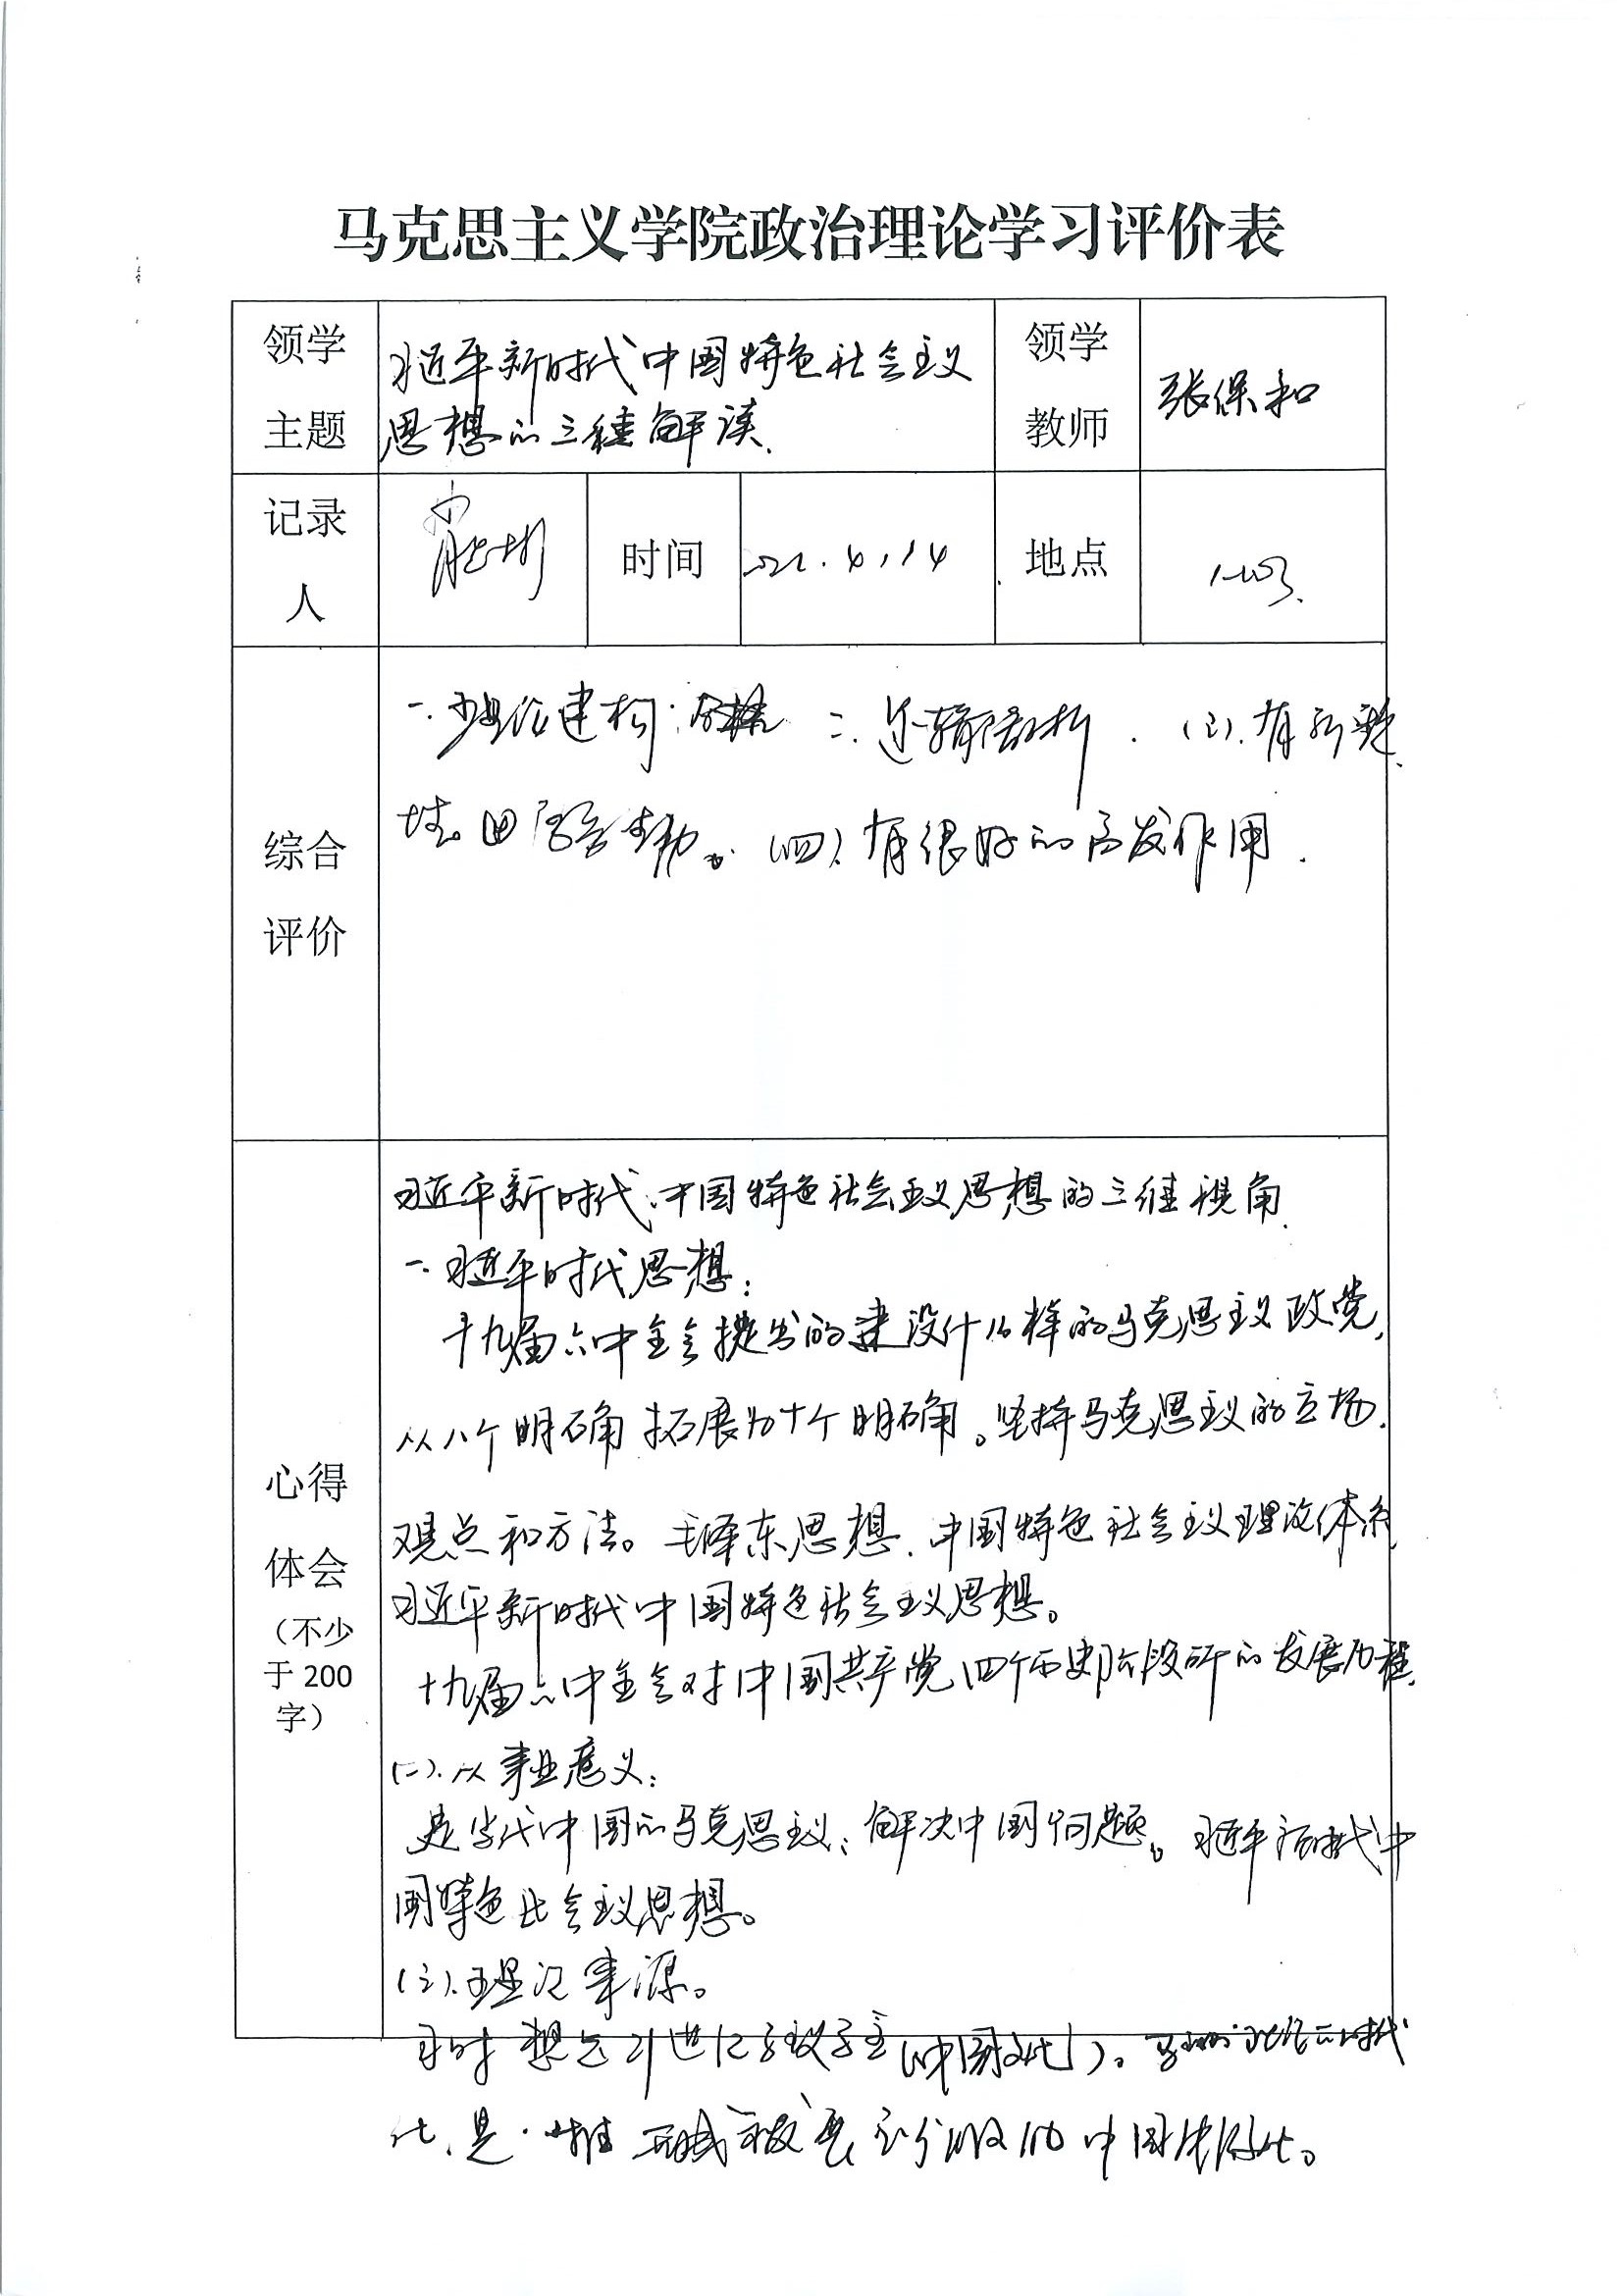 马克思主义学院政治理论学习评价表
领学主题
习近平新时代中国特色社会主义
思想的三维解读.
领学教师
张保和
记录人
时间
2022.4.14
地点
1-203.
综合评价
一.理论建构: 二.逻辑剖析.(三).有所创
(四).有很好的启发作用.
心得体会
(不少于200字)
习近平新时代中国特色社会主义思想的三维视角.
一.习近平时代思想:
十九届六中全会提出的建设什么样的马克思主义政党,
从八个明确拓展为十个明确。坚持马克思主义的立场.
观点和方法。毛泽东思想.中国特色社会主义理论体系
习近平新时代中国特色社会主义思想。
十九届六中全会对中国共产党四个历史阶段所的发展历程.
(二).从事业意义:
是当代中国的马克思主义;解决中国问题。习近平新时代中
国特色社会主义思想。
(三).理论来源。